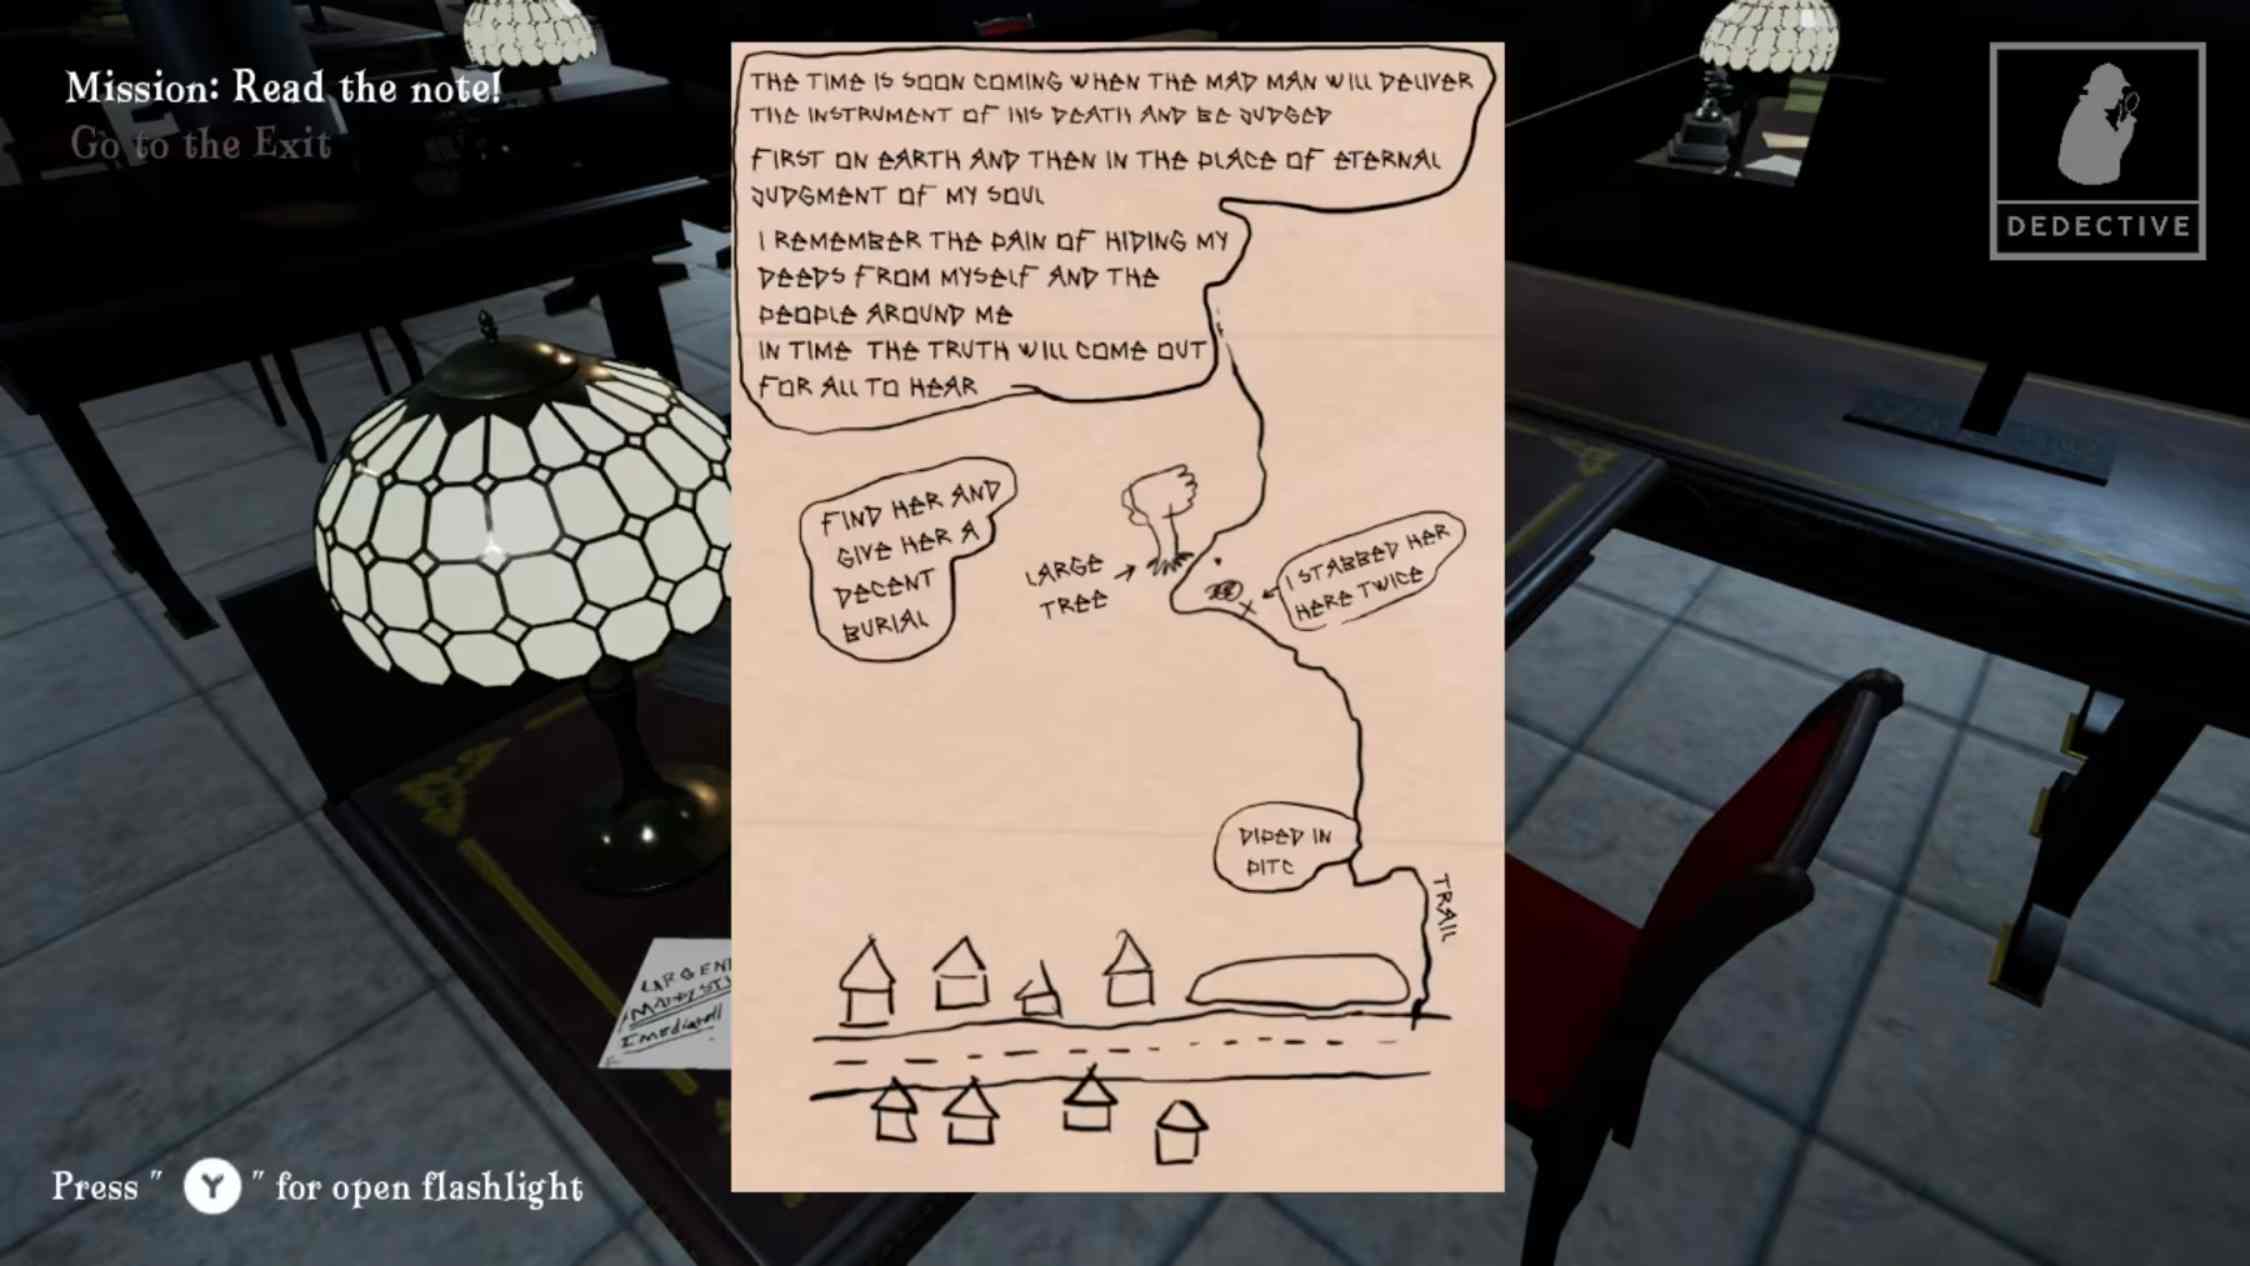 Mission: Read the note!
Go to the Exit
DEDECTIVE
THE TIME IS SOON COMING WHEN THE MAD MAN WILL DELIVER
THE INSTRUMENT OF HIS DEATH AND BE JUDGED
FIRST ON EARTH AND THEN IN THE PLACE OF ETERNAL
JUDGMENT OF MY SOUL
I REMEMBER THE PAIN OF HIDING MY
DEEDS FROM MYSELF AND THE
PEOPLE AROUND ME
IN TIME THE TRUTH WILL COME OUT
FOR ALL TO HEAR
FIND HER AND
GIVE HER A
DECENT
BURIAL
LARGE
TREE
I STABBED HER
HERE TWICE
DIPED IN
PITC
TRAIL
Press " Y " for open flashlight